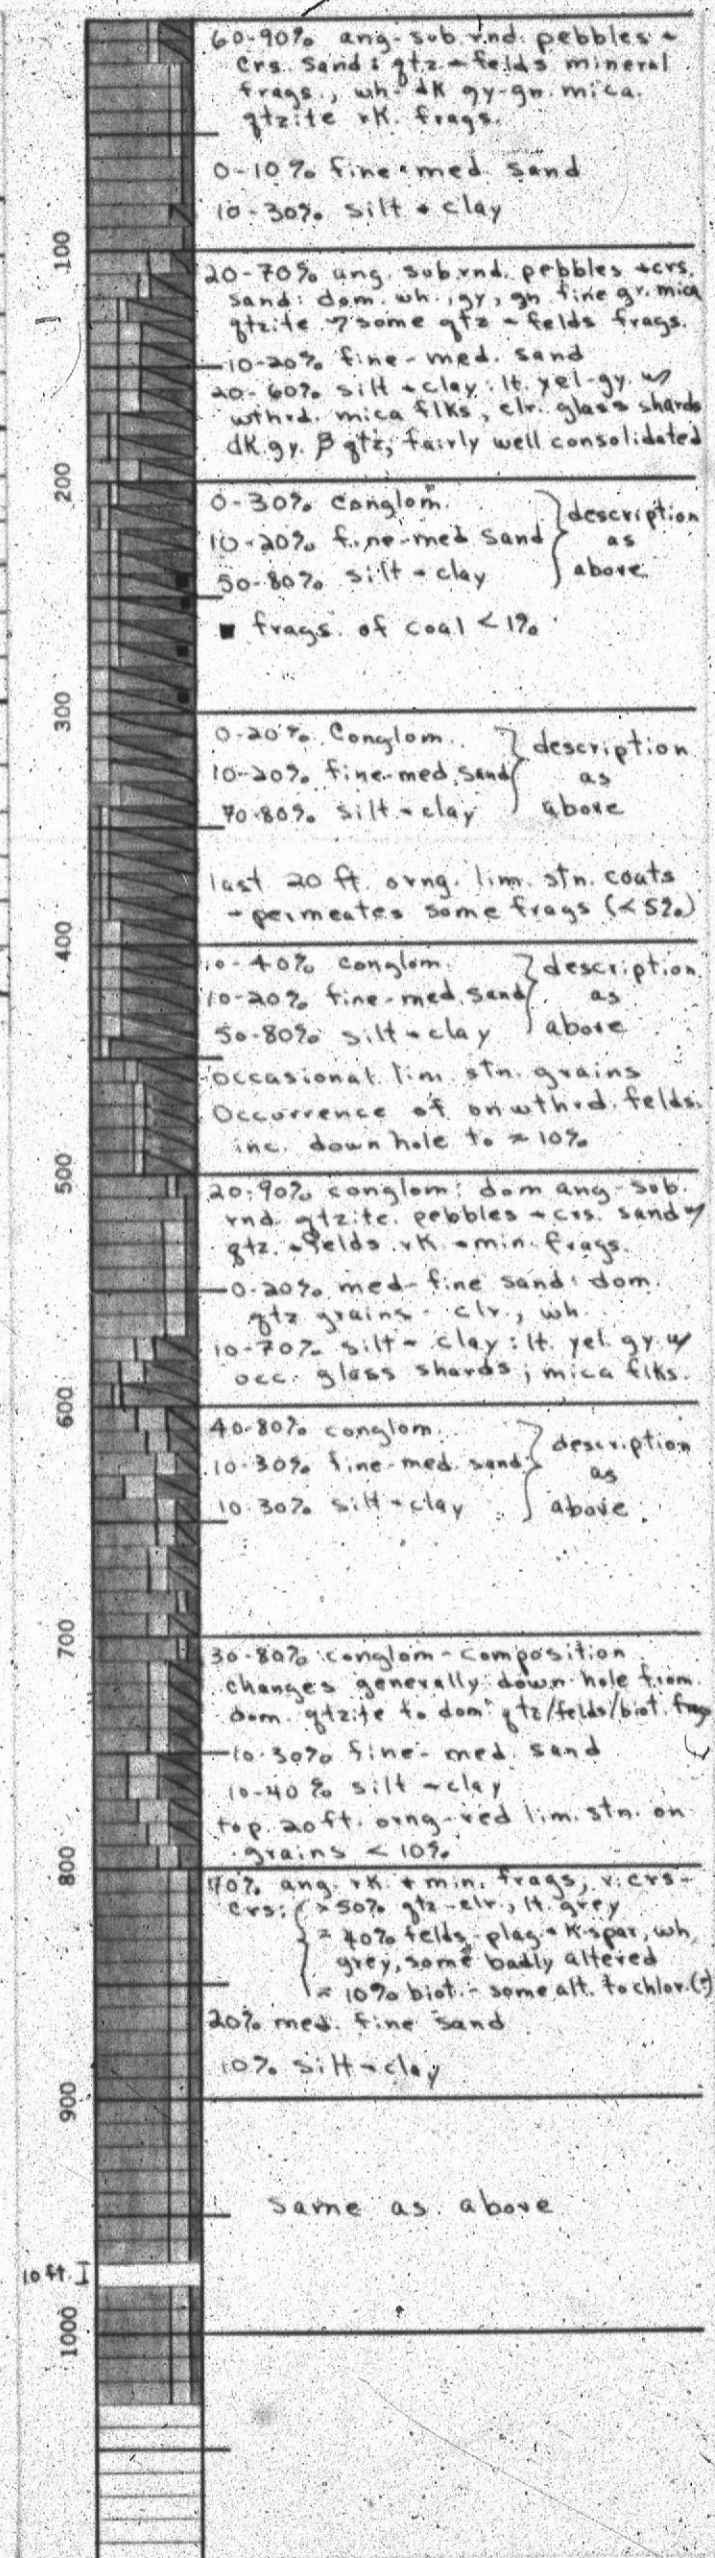 60-90% ang-sub.rnd. pebbles +
crs. sand: qtz + felds mineral
frags., wh-dk gy-gn. mica.
qtzite rk. frags.
0-10% fine-med. sand
10-30% silt + clay
100
20-70% ang. sub.rnd. pebbles + crs.
sand: dom. wh., gy, gn fine gr. mica
qtzite w/ some qtz + felds frags.
10-20% fine-med. sand
20-60% silt + clay: lt. yel-gy. w/
wthrd. mica flks, clr. glass shards
dk.gy. β qtz; fairly well consolidated
200
0-30% Conglom.
10-20% fine-med sand } description as above
50-80% silt + clay
■ frags. of coal <1%
300
0-20% Conglom.
10-20% fine-med. sand } description as above
70-80% silt + clay
last 20 ft. orng. lim. stn. coats
+ permeates some frags (<5%)
400
10-40% conglom.
10-20% fine-med. sand } description as above
50-80% silt + clay
occasional lim. stn. grains
Occurrence of unwthrd. felds.
inc. down hole to ≈ 10%
500
20-90% conglom: dom ang-sub.
rnd. qtzite. pebbles + crs. sand w/
qtz. + felds rk. + min. frags.
0-20% med-fine sand: dom.
qtz grains - clr., wh.
10-70% silt + clay: lt. yel. gy w/
occ. glass shards; mica flks.
600
40-80% conglom.
10-30% fine-med. sand } description as above
10-30% silt + clay
700
30-80% conglom - composition
changes generally down hole from
dom. qtzite to dom. qtz/felds/biot. frags
10-30% fine-med. sand
10-40% silt + clay
top 20 ft. orng-red lim. stn. on
grains < 10%
800
70% ang. rk. + min. frags, v. crs-
crs: { >50% qtz - clr., lt. grey
≈ 40% felds - plag + K-spar, wh,
grey, some badly altered
≈ 10% biot. - some alt. to chlor.(?)
20% med. fine sand
10% silt + clay
900
same as above
10 ft. I
1000